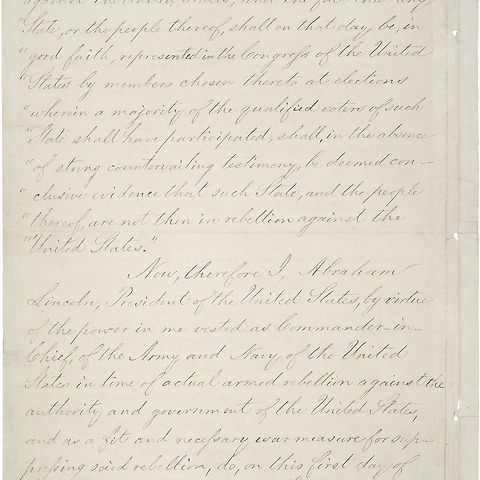 against the United States, and the fact that any
"State, or the people thereof, shall on that day be, in
"good faith, represented in the Congress of the United
"States by members chosen thereto at elections
"wherein a majority of the qualified voters of such
"State shall have participated, shall, in the absence
"of strong countervailing testimony, be deemed con-
"clusive evidence that such State, and the people
"thereof, are not then in rebellion against the
"United States."
Now, therefore I, Abraham
Lincoln, President of the United States, by virtue
of the power in me vested as Commander-in-
Chief, of the Army and Navy of the United
States in time of actual armed rebellion against the
authority and government of the United States,
and as a fit and necessary war measure for sup-
pressing said rebellion, do, on this first day of